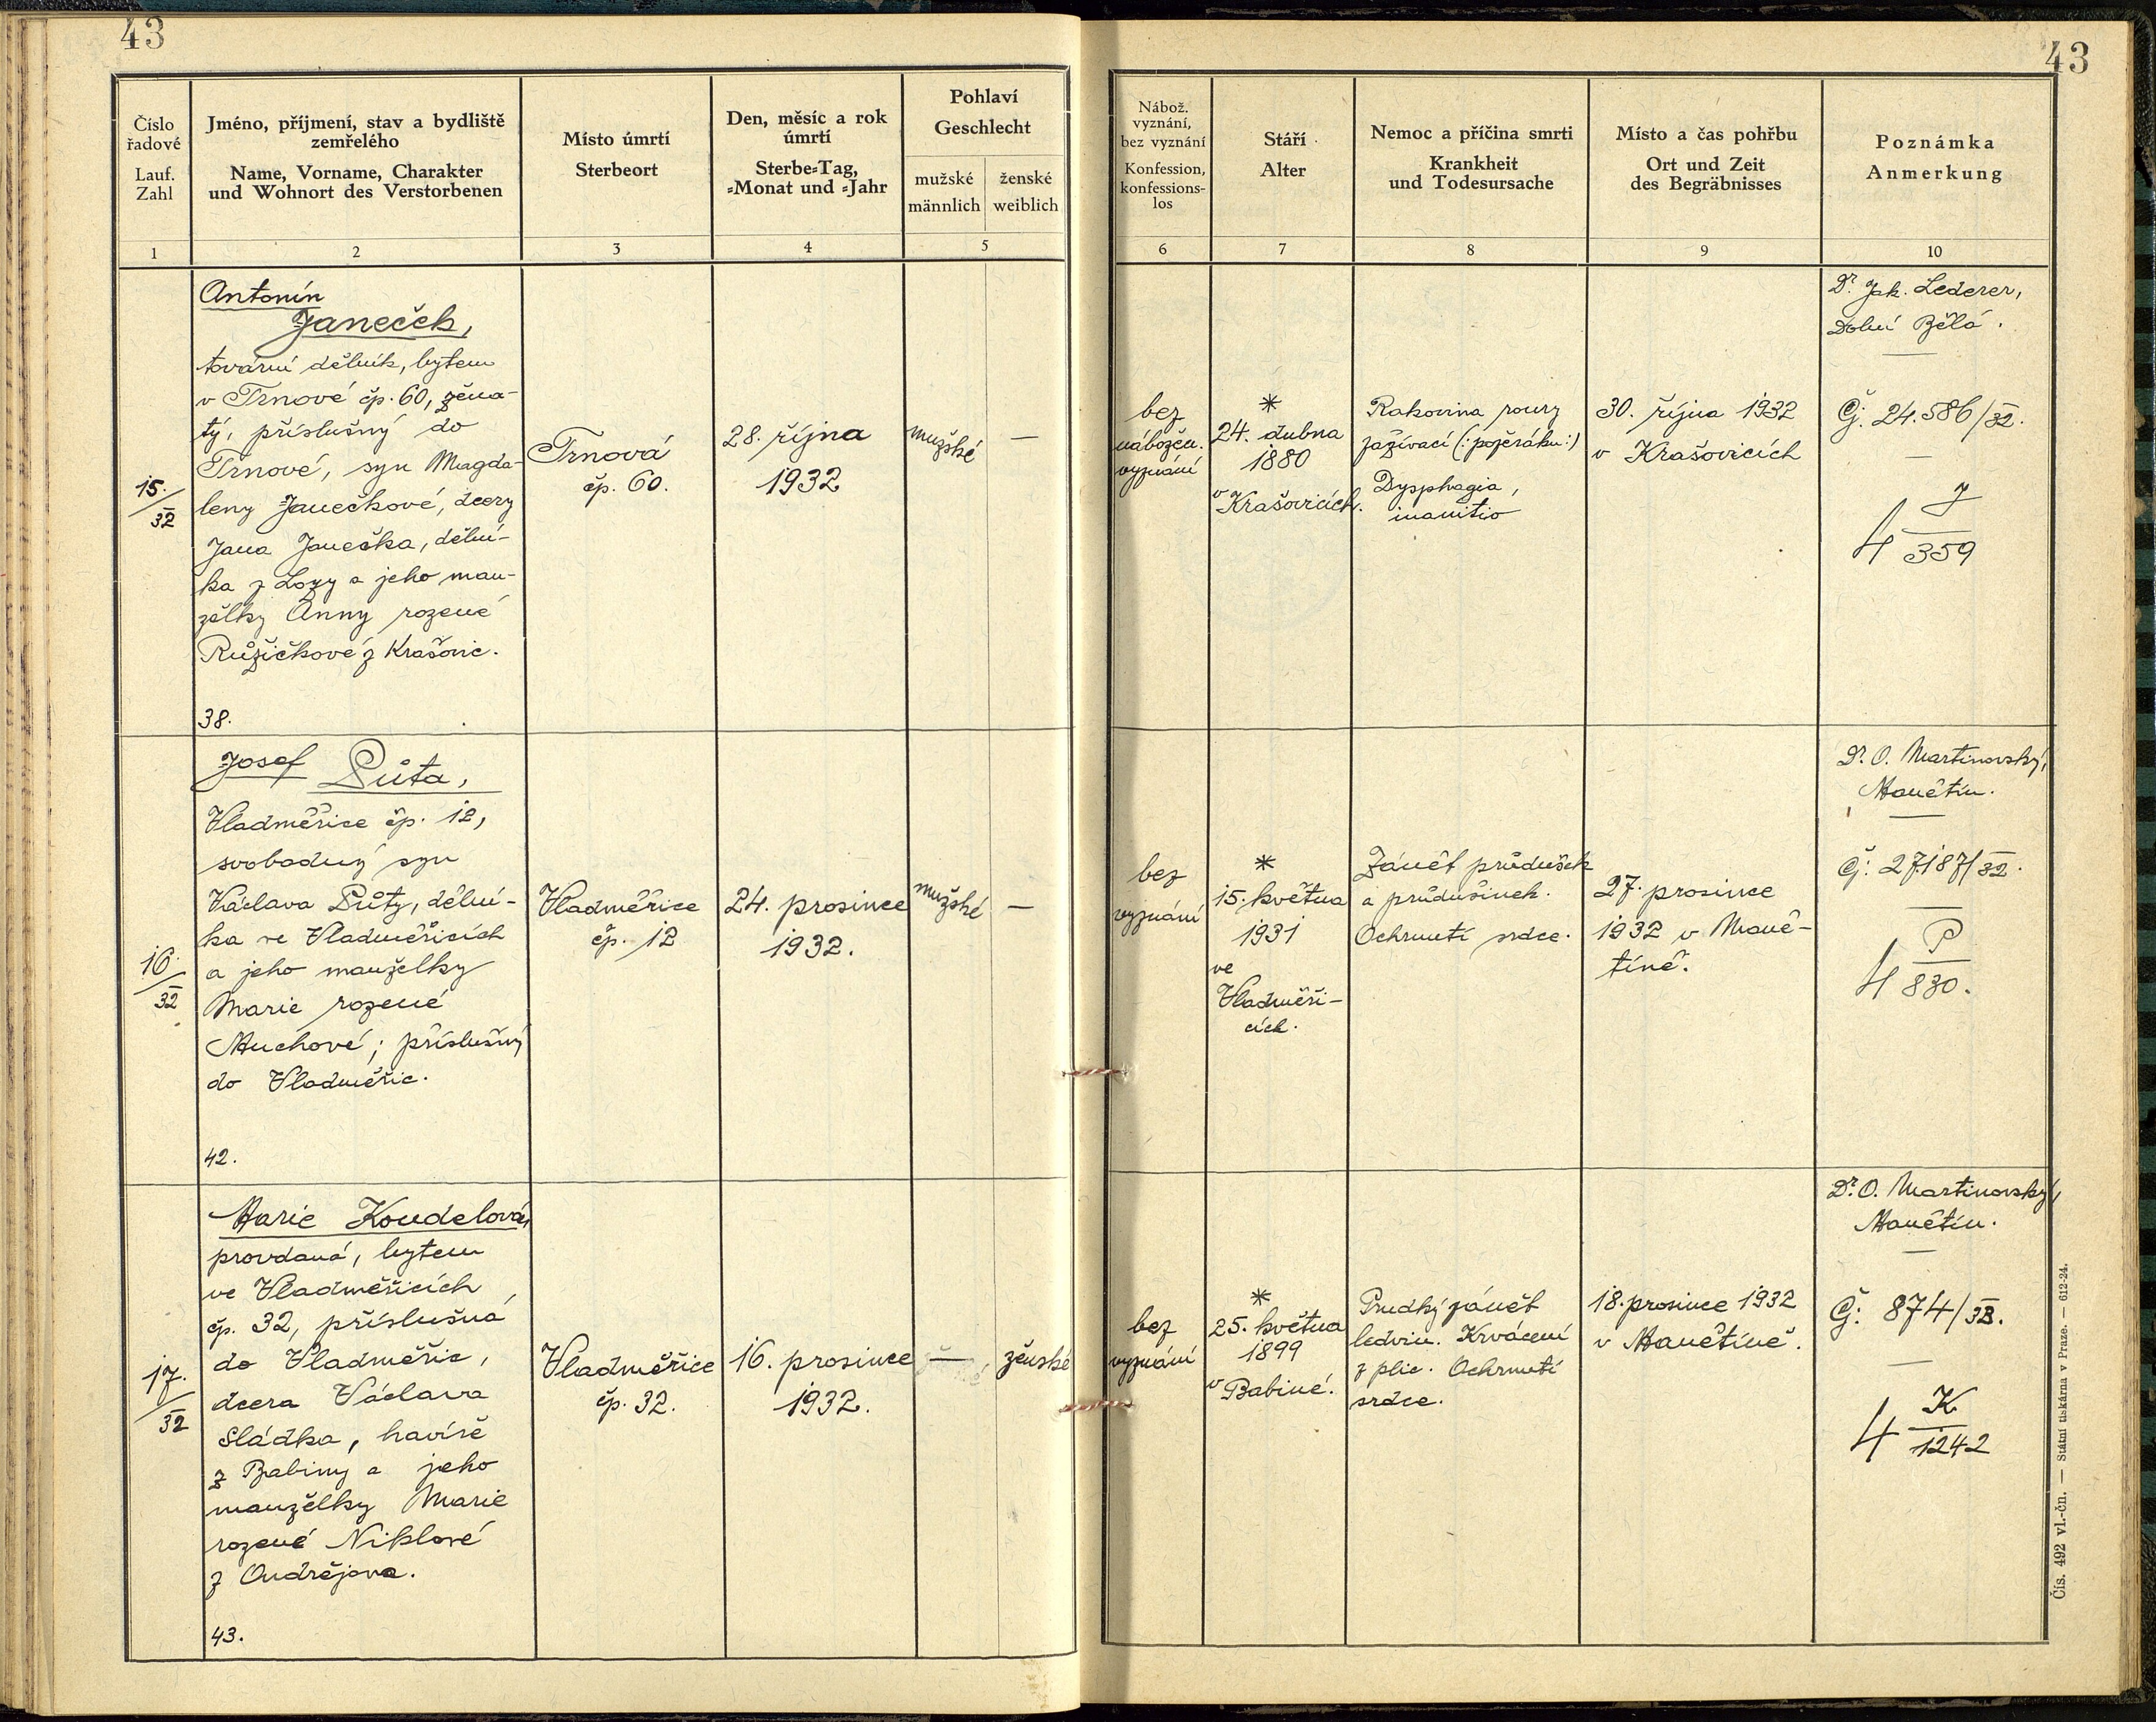 43
43
Číslo
řadové
Lauf.
Zahl
Jméno, příjmení, stav a bydliště
zemřelého
Name, Vorname, Charakter
und Wohnort des Verstorbenen
Místo úmrtí
Sterbeort
Den, měsíc a rok
úmrtí
Sterbe=Tag,
=Monat und =Jahr
Pohlaví
Geschlecht
mužské
männlich
ženské
weiblich
Nábož.
vyznání,
bez vyznání
Konfession,
konfessions-
los
Stáří
Alter
Nemoc a příčina smrti
Krankheit
und Todesursache
Místo a čas pohřbu
Ort und Zeit
des Begräbnisses
Poznámka
Anmerkung
1
2
3
4
5
6
7
8
9
10
15./32
Antonín
Janeček,
tovární dělník, bytem
v Trnové čp. 60, žena-
tý, příslušný do
Trnové, syn Magda-
leny Janečkové, dcery
Jana Janečka, dělní-
ka z Lozy a jeho man-
želky Anny rozené
Růžičkové z Krašovic.
38.
Trnová
čp. 60.
28. října
1932
mužské
—
bez
nábožen.
vyznání
*
24. dubna
1880
v Krašovicích.
Rakovina roury
zažívací (: požeráku :)
Dysphagia,
inanitio
30. října 1932
v Krašovicích
Dr. Jak. Lederer,
Dolní Bělá.
Čj. 24.586/32.
4 J/359
16./32
Josef Půta,
Vladměřice čp. 12,
svobodný syn
Václava Půty, dělní-
ka ve Vladměřicích
a jeho manželky
Marie rozené
Muchové; příslušný
do Vladměřic.
42.
Vladměřice
čp. 12
24. prosince
1932.
mužské
—
bez
vyznání
*
15. května
1931
ve
Vladměři-
cích.
Zánět průdušek
a průdušinek.
Ochrnutí srdce.
27. prosince
1932 v Maně-
tíně.
Dr. O. Martinovský,
Manětín.
Čj. 27187/32.
4 P/830.
17./32
Marie Koudelová,
provdaná, bytem
ve Vladměřicích
čp. 32, příslušná
do Vladměřic,
dcera Václava
Sládka, havíře
z Babiny a jeho
manželky Marie
rozené Niklové
z Ondřejova.
43.
Vladměřice
čp. 32.
16. prosince
1932.
—
ženské
bez
vyznání
*
25. května
1899
v Babině.
Prudký zánět
ledvin. Krvácení
z plic. Ochrnutí
srdce.
18. prosince 1932
v Manětíně.
Dr. O. Martinovský,
Manětín.
Čj. 874/33.
4 K/1242
Čís. 492 vl.-čn. — Státní tiskárna v Praze. — 612-24.